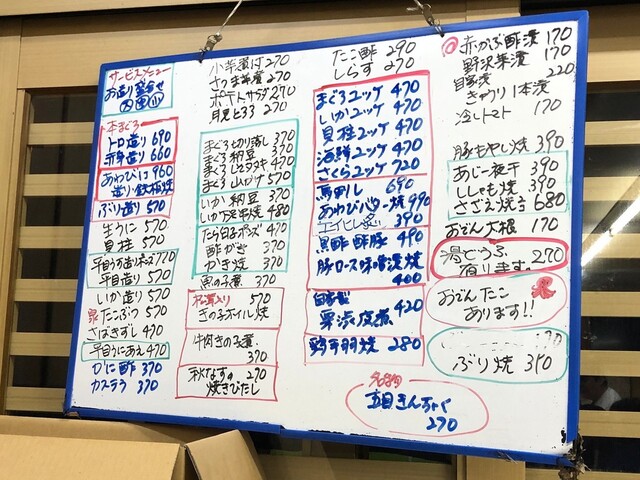 サービスメニュー
お造り盛合せ
大 中 小
本まぐろ
トロ造り 690
赤身造り 660
あわび 960
造り・鉄板焼
ぶり造り 570
生うに 570
貝柱 570
平目造り 570
いか造り 570
たこぶつ 570
さばきずし 470
平目うにあえ 470
かに酢 370
カステラ 370
小芋煮付 270
さつま芋煮 270
ポテトサラダ 270
月見とろろ 270
まぐろ切り落し 370
まぐろ納豆 370
まぐろ山かけ 570
いか納豆 370
いか下足串焼 480
たら白子ポン酢 470
酢がき 370
かき焼 370
魚の子煮 370
松茸入り 570
きの子ホイル焼
牛肉きの子煮
370
秋なすの 270
焼きびたし
たこ酢 290
しらす 270
まぐろユッケ 470
いかユッケ 470
貝柱ユッケ 470
海鮮ユッケ 470
さくらユッケ 720
馬刺し 690
あわびバター焼 990
エイヒレ炙り 390
黒酢酢豚 490
豚ロース味噌漬焼
400
自家製
栗渋皮煮 420
鶏手羽焼 280
名物
五目きんちゃく
270
赤かぶ酢漬 170
野沢菜漬 170
自家漬 220
きゅうり1本漬
冷しトマト 170
豚もやし焼 390
あじ一夜干 390
ししゃも焼 390
さざえ焼き 680
おでん大根 170
湯どうふ 270
有ります。
おでんたこ
あります!!
ぶり焼 350